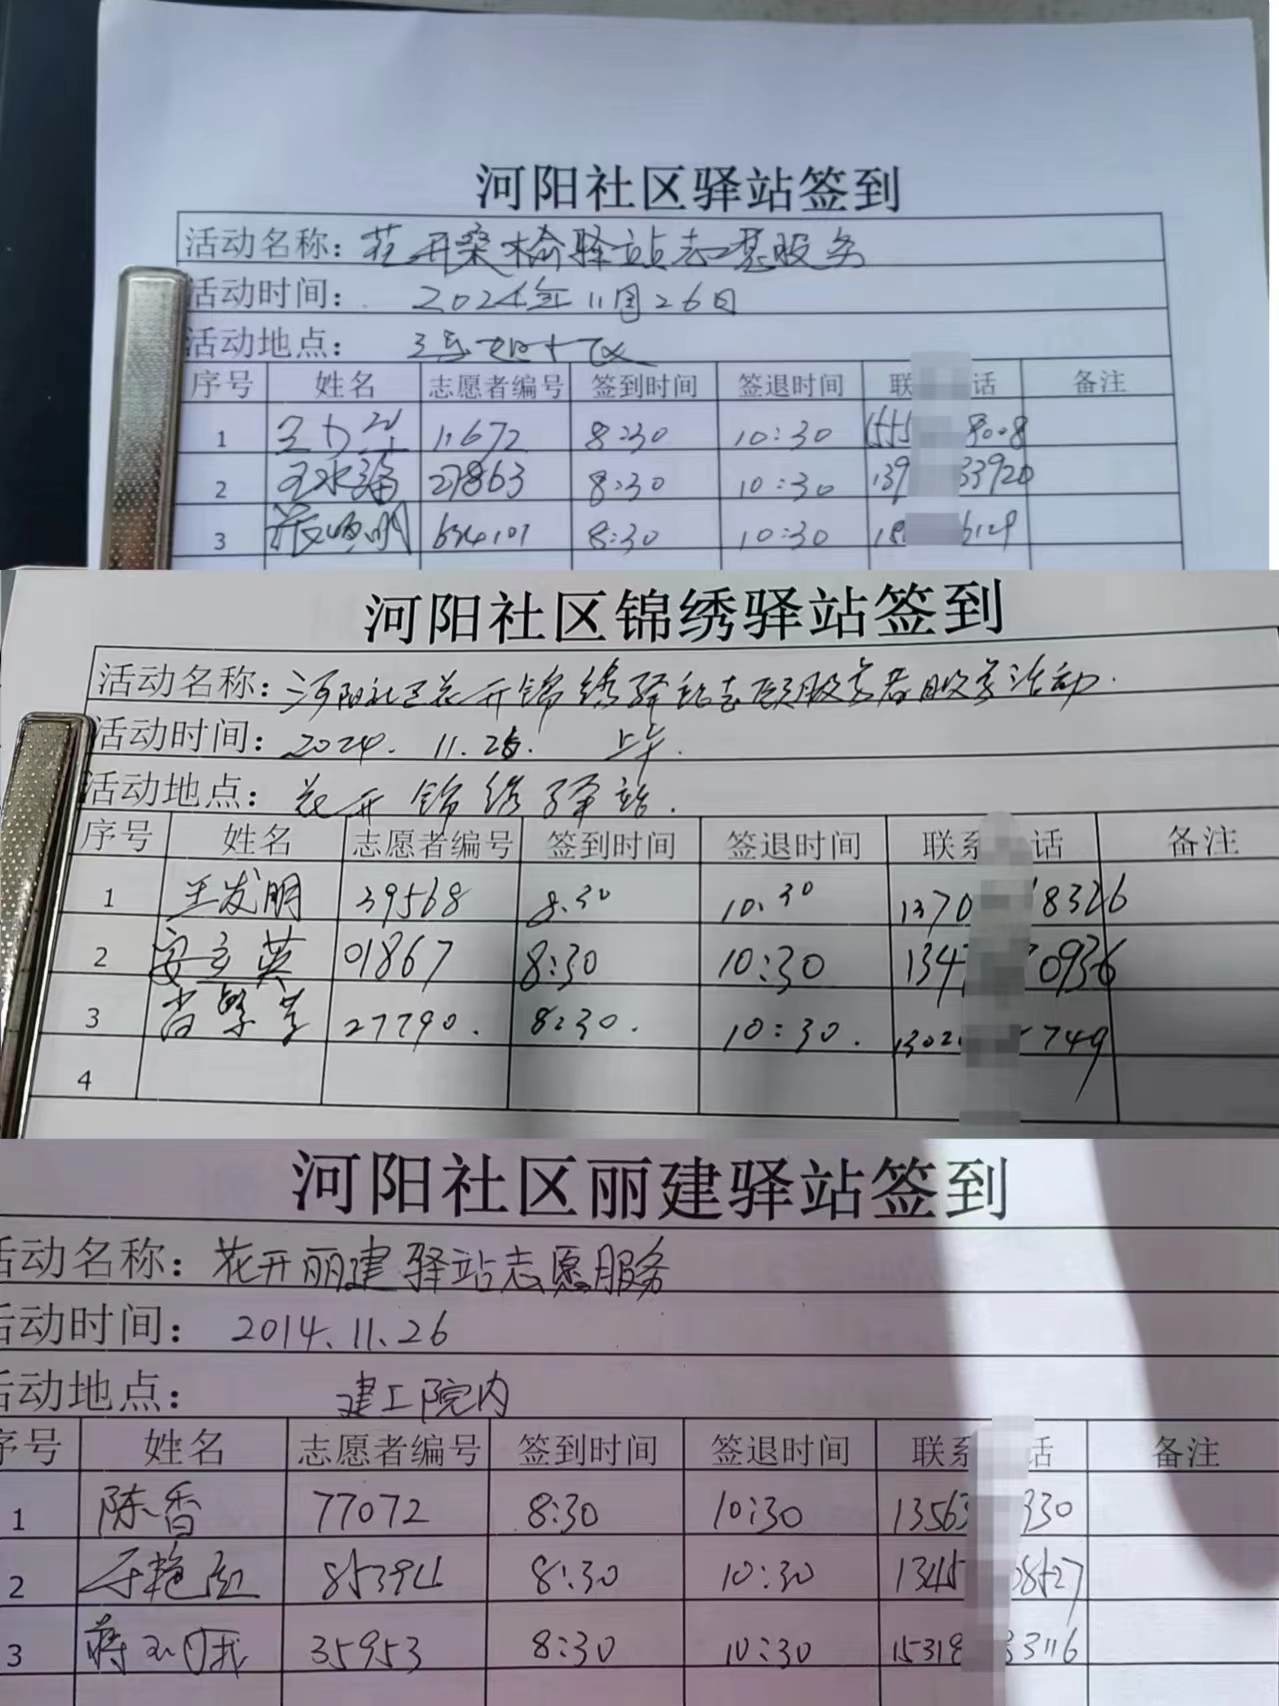 河阳社区驿站签到
活动名称：花开桑榆驿站志愿服务
活动时间：2024年11月26日
活动地点：
序号 姓名 志愿者编号 签到时间 签退时间 联 话 备注
1 11672 8:30 10:30
2 王水涌 27863 8:30 10:30 139 33920
3 634101 8:30 10:30 6129
河阳社区锦绣驿站签到
活动名称：河阳社区花开锦绣驿站志愿服务者服务活动.
活动时间：2024. 11.26. 上午.
活动地点：花开锦绣驿站.
序号 姓名 志愿者编号 签到时间 签退时间 联系 话 备注
1 王发明 39568 8:30 10:30 1370 8326
2 安立英 01867 8:30 10:30 134 0936
3 27790. 8:30. 10:30. 1302 749
4
河阳社区丽建驿站签到
活动名称：花开丽建驿站志愿服务
活动时间：2014.11.26
活动地点：建工院内
序号 姓名 志愿者编号 签到时间 签退时间 联系 话 备注
1 陈香 77072 8:30 10:30 13563 330
2 于艳红 85394 8:30 10:30 1345 08527
3 35953 8:30 10:30 15318 3116